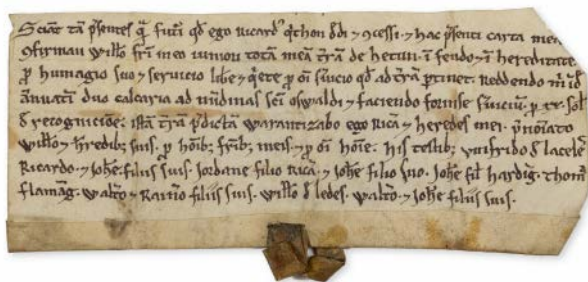 Sciāt tā p̄sentes q̄ fut̄i qđ ego Ricard᾽ dedi ⁊ ꝯcessi ⁊ hac p̄senti carta mea
ꝯfirmaui Wiłło fr̄i meo iuniori totā meā t̄rā de hetun ī feudo ⁊ ī hereditate
ꝑ humagio suo ⁊ seruicio lib̄e ⁊ q̄ete ꝑ oī s̄uicio qđ ad t̄rā ꝑtinet. Reddendo m̄
ānuatī duo calcaria ad nūdinas sc̄i oswaldi ⁊ faciendo forinse s̄uiciū. ꝑ xx. sol
recogniciōe. istā t̄rā p̄dictā Warantizabo ego Ric̄ ⁊ heredes mei. p̄noīato
Wiłło ⁊ h̄redib᾽ suis ꝑ hōib᾽ fr̄ib᾽ meis ⁊ ꝑ oī hōie. his testib᾽ vmfrido
Ricardo. ⁊ Joħe. filiis suis. Jordane filio Ric̄. ⁊ Joħe filio suo. Joħe fił hardig. Thom̄
flamāg. Walt̄o ⁊ filiis suis. Wiłło đ ledes. Walt̄o. ⁊ Joħe filiis suis.